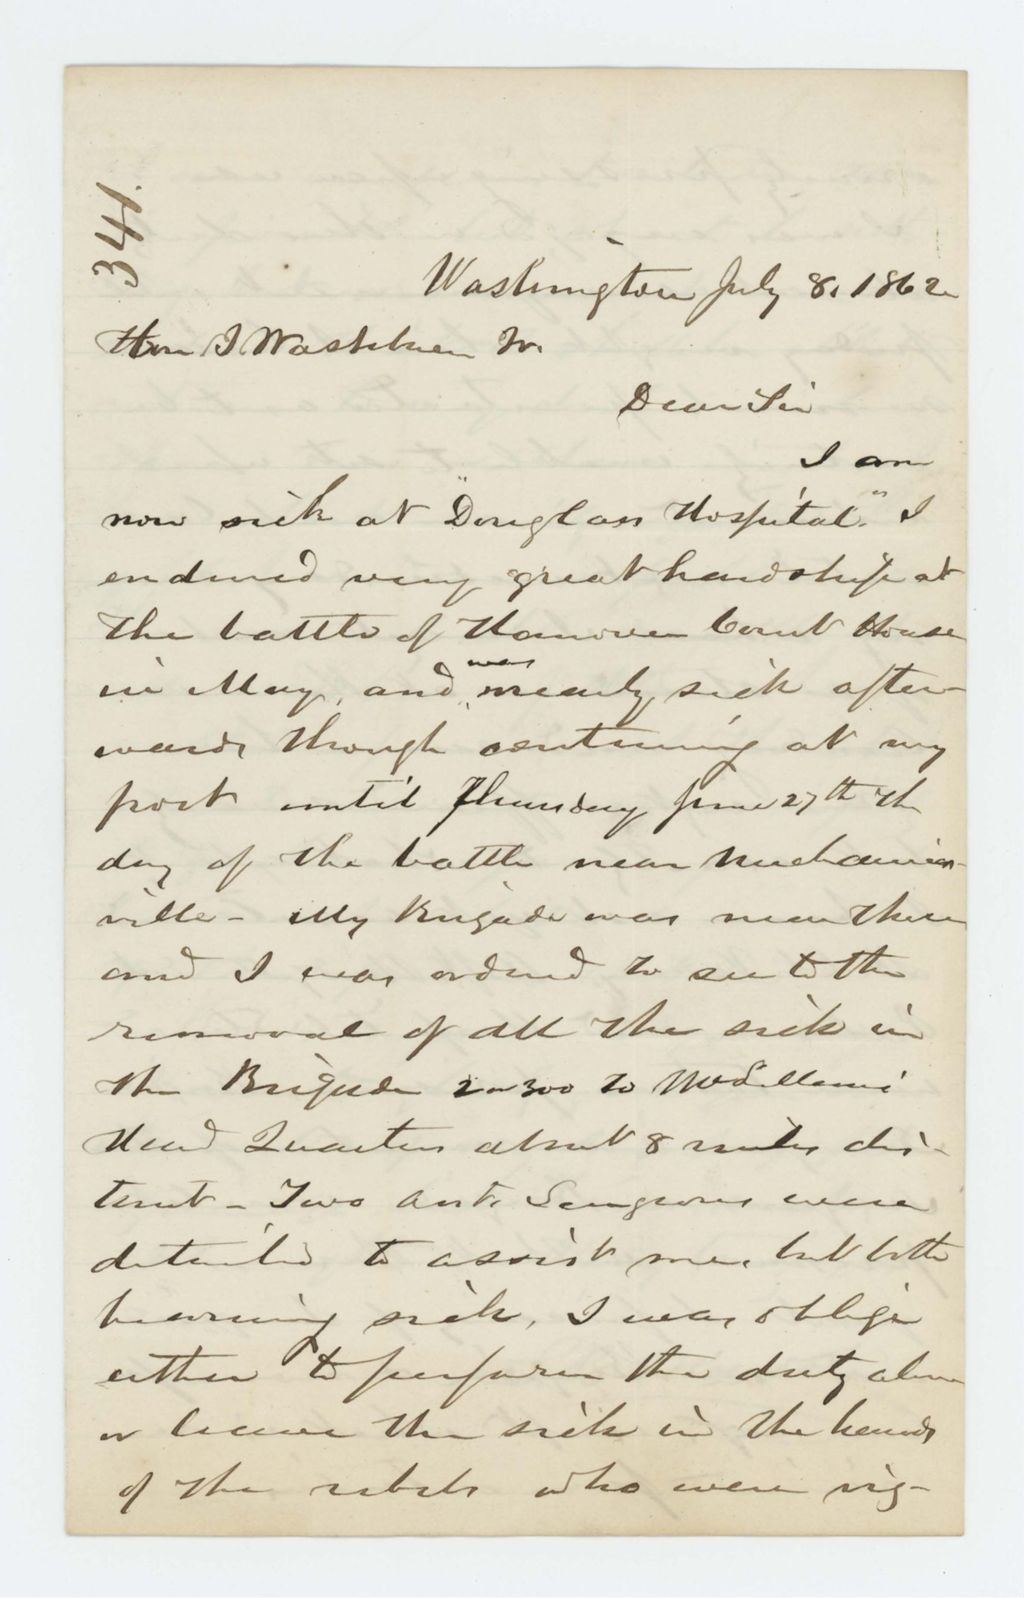 341.
Washington July 8, 1862
Hon I Washburn Jr.
Dear Sir
I am
now sick at "Douglass Hospital." I
endured very great hardships at
the battle of Hanover Court House
in May, and was nearly sick after-
wards though continuing at my
post until Thursday June 27th the
day of the battle near Mechanics-
ville - My Brigade was near there
and I was ordered to see to the
removal of all the sick in
the Brigade 2 or 300 to McClellans
Head Quarters about 8 miles dis-
tant - Two Asst. Surgeons were
detailed to assist me, but both
becoming sick, I was oblige
either to perform the duty alone
or leave the sick in the hands
of the rebels who were vig-